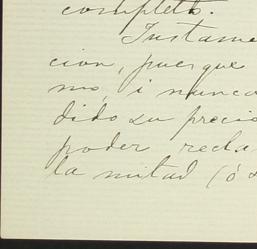 completo.
Justame
cion, pues que
mo, i nunca
dido su precio
poder recla
la mitad (ó